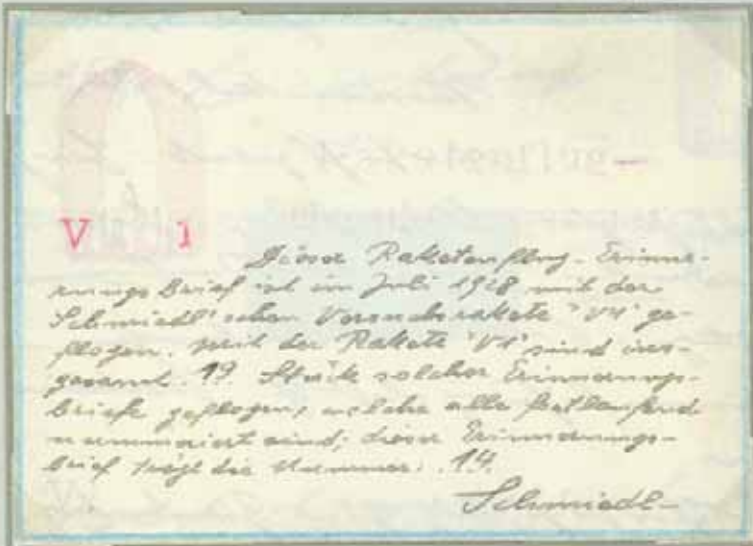 V 1
Dieser Raketenflug-Erinne-
rungsbrief ist im Juli 1928 mit der
Schmiedl'schen Versuchsrakete "V1" ge-
flogen. Mit der Rakete "V1" sind ins-
gesamt 19. Stück solcher Erinnerungs-
briefe geflogen, welche alle fortlaufend
nummeriert sind; dieser Erinnerungs-
brief trägt die Nummer: 14.
Schmiedl